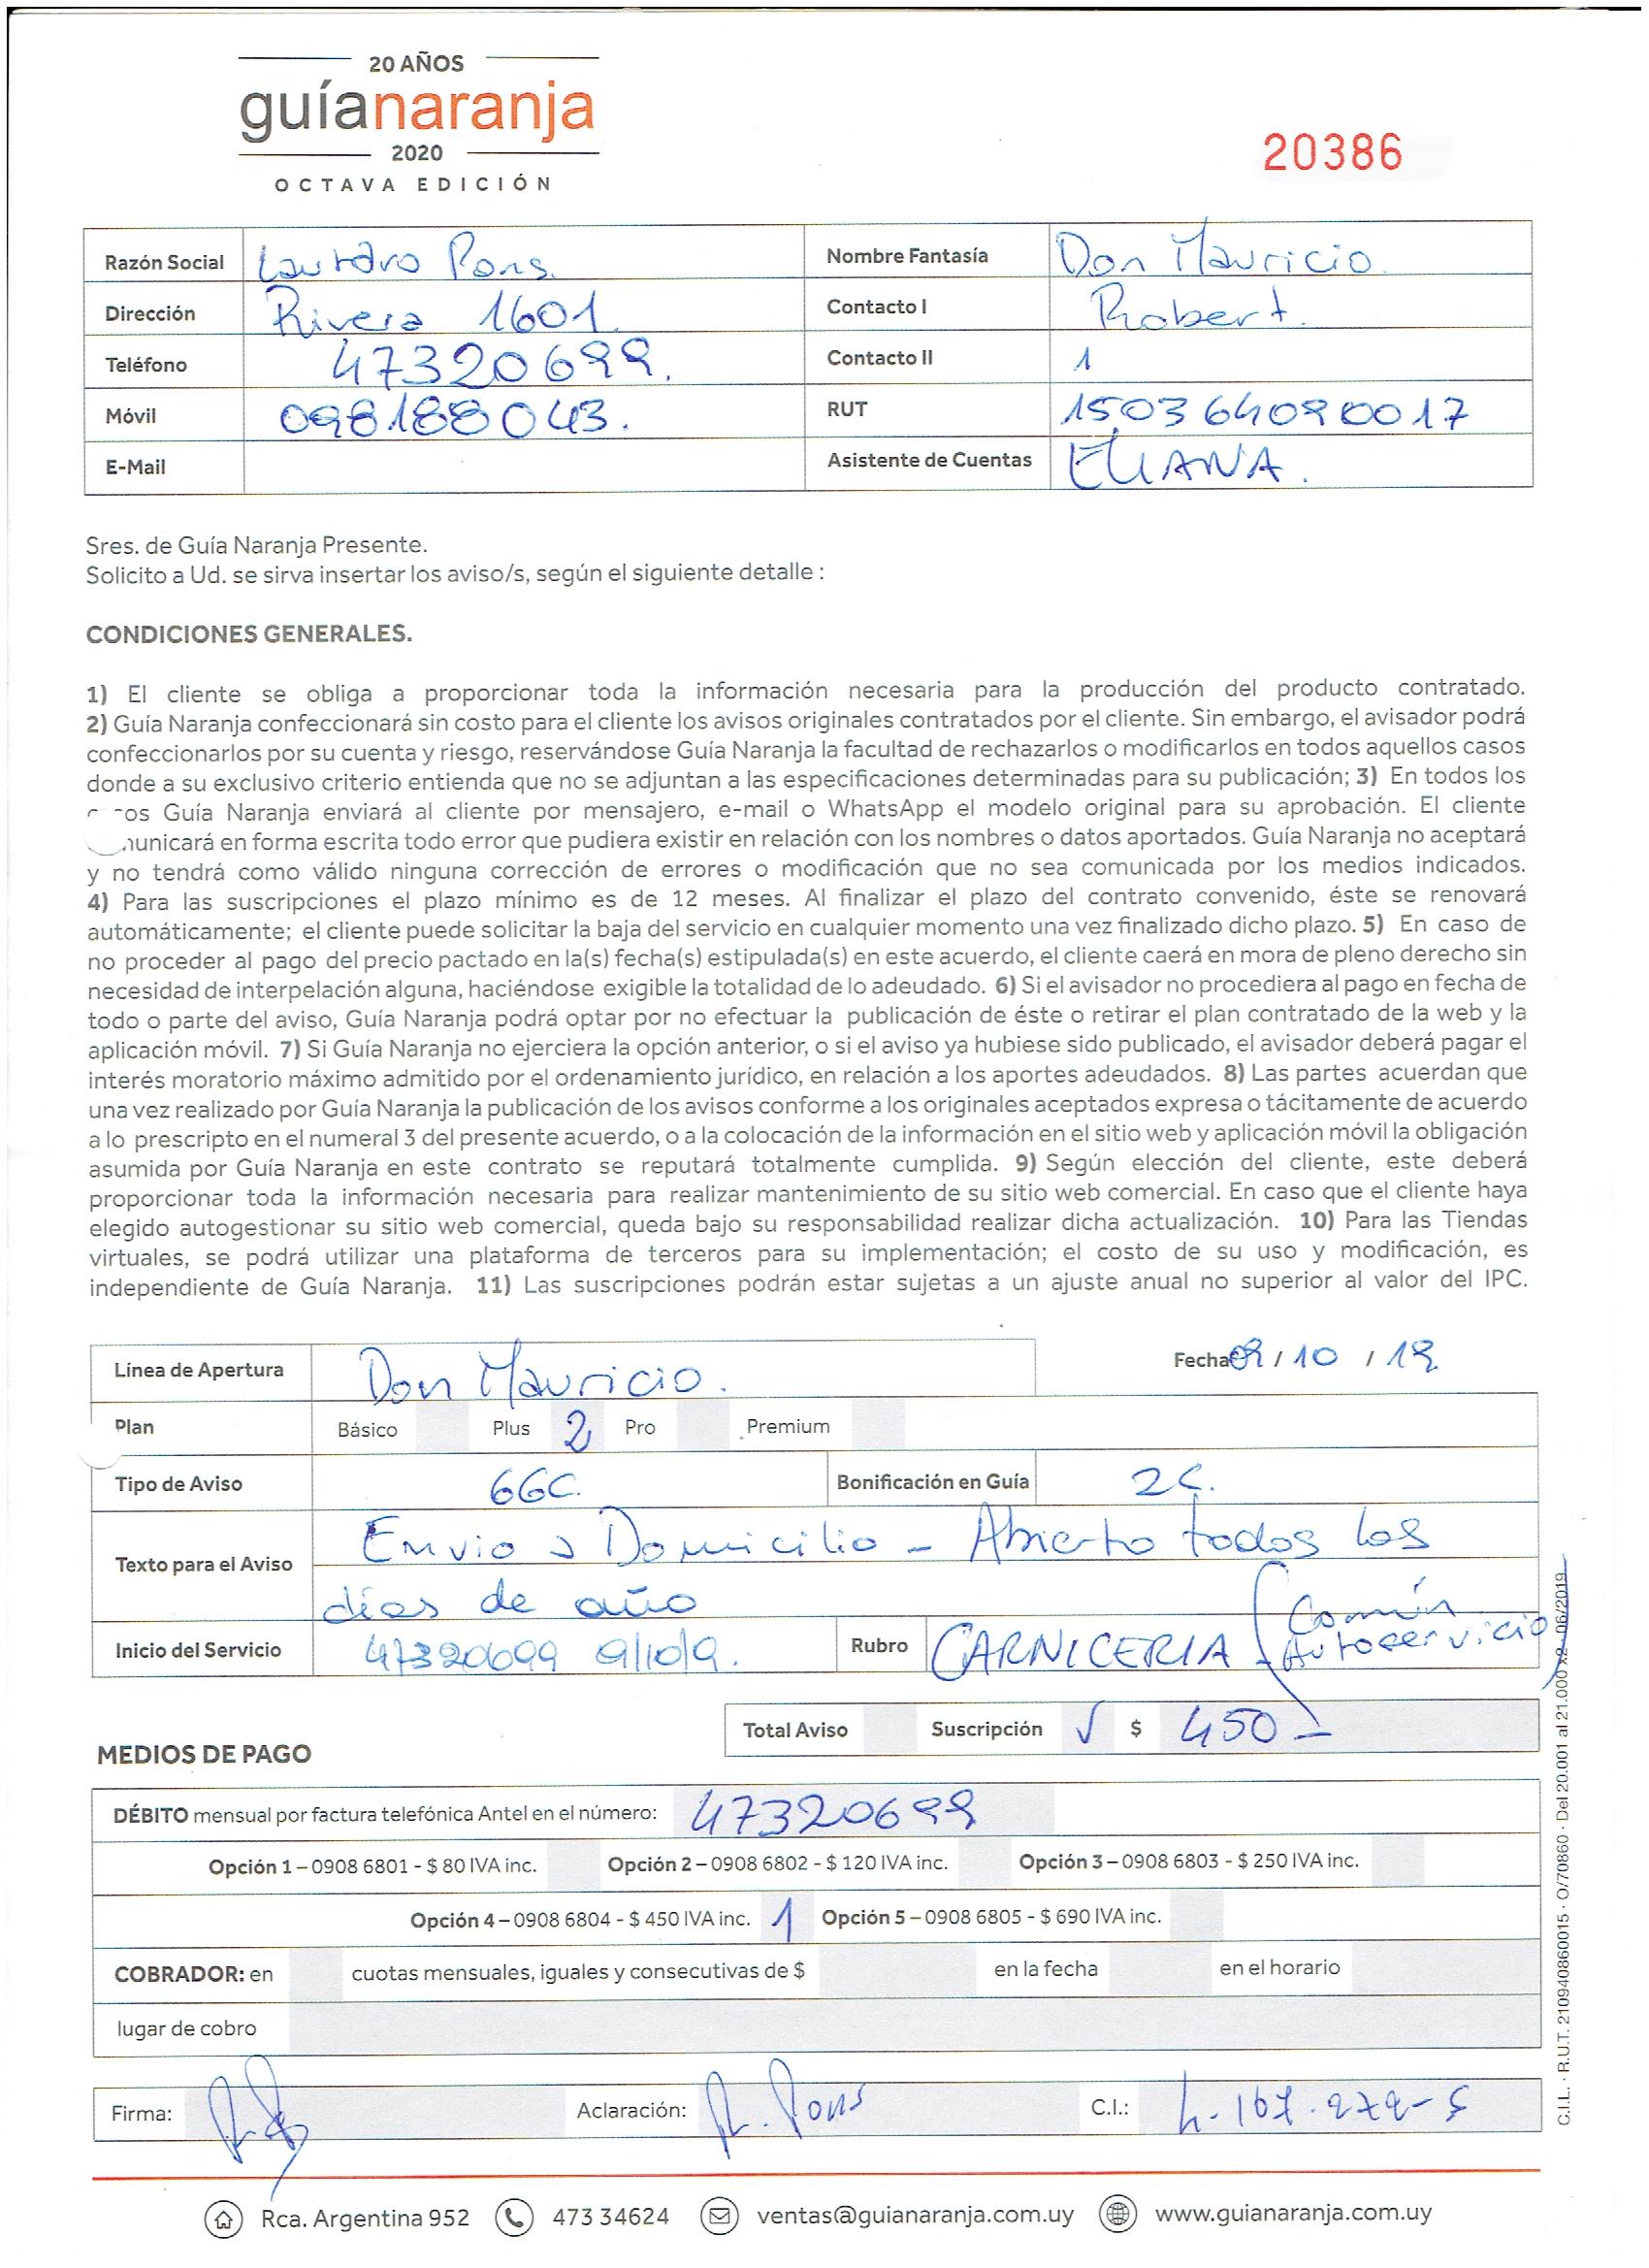 20 AÑOS
guíanaranja
2020
OCTAVA EDICIÓN
20386
Razón Social Lautaro Pons. Nombre Fantasía Don Mauricio
Dirección Rivera 1601. Contacto I Robert.
Teléfono 47320699. Contacto II 1
Móvil 098188043. RUT 150364090017
E-Mail Asistente de Cuentas ELIANA.
Sres. de Guía Naranja Presente.
Solicito a Ud. se sirva insertar los aviso/s, según el siguiente detalle :
CONDICIONES GENERALES.
1) El cliente se obliga a proporcionar toda la información necesaria para la producción del producto contratado.
2) Guía Naranja confeccionará sin costo para el cliente los avisos originales contratados por el cliente. Sin embargo, el avisador podrá
confeccionarlos por su cuenta y riesgo, reservándose Guía Naranja la facultad de rechazarlos o modificarlos en todos aquellos casos
donde a su exclusivo criterio entienda que no se adjuntan a las especificaciones determinadas para su publicación; 3) En todos los
os Guía Naranja enviará al cliente por mensajero, e-mail o WhatsApp el modelo original para su aprobación. El cliente
unicará en forma escrita todo error que pudiera existir en relación con los nombres o datos aportados. Guía Naranja no aceptará
y no tendrá como válido ninguna corrección de errores o modificación que no sea comunicada por los medios indicados.
4) Para las suscripciones el plazo mínimo es de 12 meses. Al finalizar el plazo del contrato convenido, éste se renovará
automáticamente; el cliente puede solicitar la baja del servicio en cualquier momento una vez finalizado dicho plazo. 5) En caso de
no proceder al pago del precio pactado en la(s) fecha(s) estipulada(s) en este acuerdo, el cliente caerá en mora de pleno derecho sin
necesidad de interpelación alguna, haciéndose exigible la totalidad de lo adeudado. 6) Si el avisador no procediera al pago en fecha de
todo o parte del aviso, Guía Naranja podrá optar por no efectuar la publicación de éste o retirar el plan contratado de la web y la
aplicación móvil. 7) Si Guía Naranja no ejerciera la opción anterior, o si el aviso ya hubiese sido publicado, el avisador deberá pagar el
interés moratorio máximo admitido por el ordenamiento jurídico, en relación a los aportes adeudados. 8) Las partes acuerdan que
una vez realizado por Guía Naranja la publicación de los avisos conforme a los originales aceptados expresa o tácitamente de acuerdo
a lo prescripto en el numeral 3 del presente acuerdo, o a la colocación de la información en el sitio web y aplicación móvil la obligación
asumida por Guía Naranja en este contrato se reputará totalmente cumplida. 9) Según elección del cliente, este deberá
proporcionar toda la información necesaria para realizar mantenimiento de su sitio web comercial. En caso que el cliente haya
elegido autogestionar su sitio web comercial, queda bajo su responsabilidad realizar dicha actualización. 10) Para las Tiendas
virtuales, se podrá utilizar una plataforma de terceros para su implementación; el costo de su uso y modificación, es
independiente de Guía Naranja. 11) Las suscripciones podrán estar sujetas a un ajuste anual no superior al valor del IPC.
Línea de Apertura Don Mauricio. Fecha 09 / 10 / 19
Plan Básico Plus 2 Pro Premium
Tipo de Aviso 6GC. Bonificación en Guía 2C.
Texto para el Aviso Envio a Domicilio - Abierto todos los
días de año
Inicio del Servicio 47320699 9/10/9. Rubro CARNICERIA (Común
Autoservicio)
Total Aviso Suscripción √ $ 450 -
MEDIOS DE PAGO
DÉBITO mensual por factura telefónica Antel en el número: 47320699
Opción 1 – 0908 6801 - $ 80 IVA inc. Opción 2 – 0908 6802 - $ 120 IVA inc. Opción 3 – 0908 6803 - $ 250 IVA inc.
Opción 4 – 0908 6804 - $ 450 IVA inc. 1 Opción 5 – 0908 6805 - $ 690 IVA inc.
COBRADOR: en cuotas mensuales, iguales y consecutivas de $ en la fecha en el horario
lugar de cobro
Firma: Aclaración: R. Pons C.I.: 4.167.272-5
C.I.L. · R.U.T. 210940860015 · O/70860 · Del 20.001 al 21.000 x2 06/2019
Rca. Argentina 952 473 34624 ventas@guianaranja.com.uy www.guianaranja.com.uy